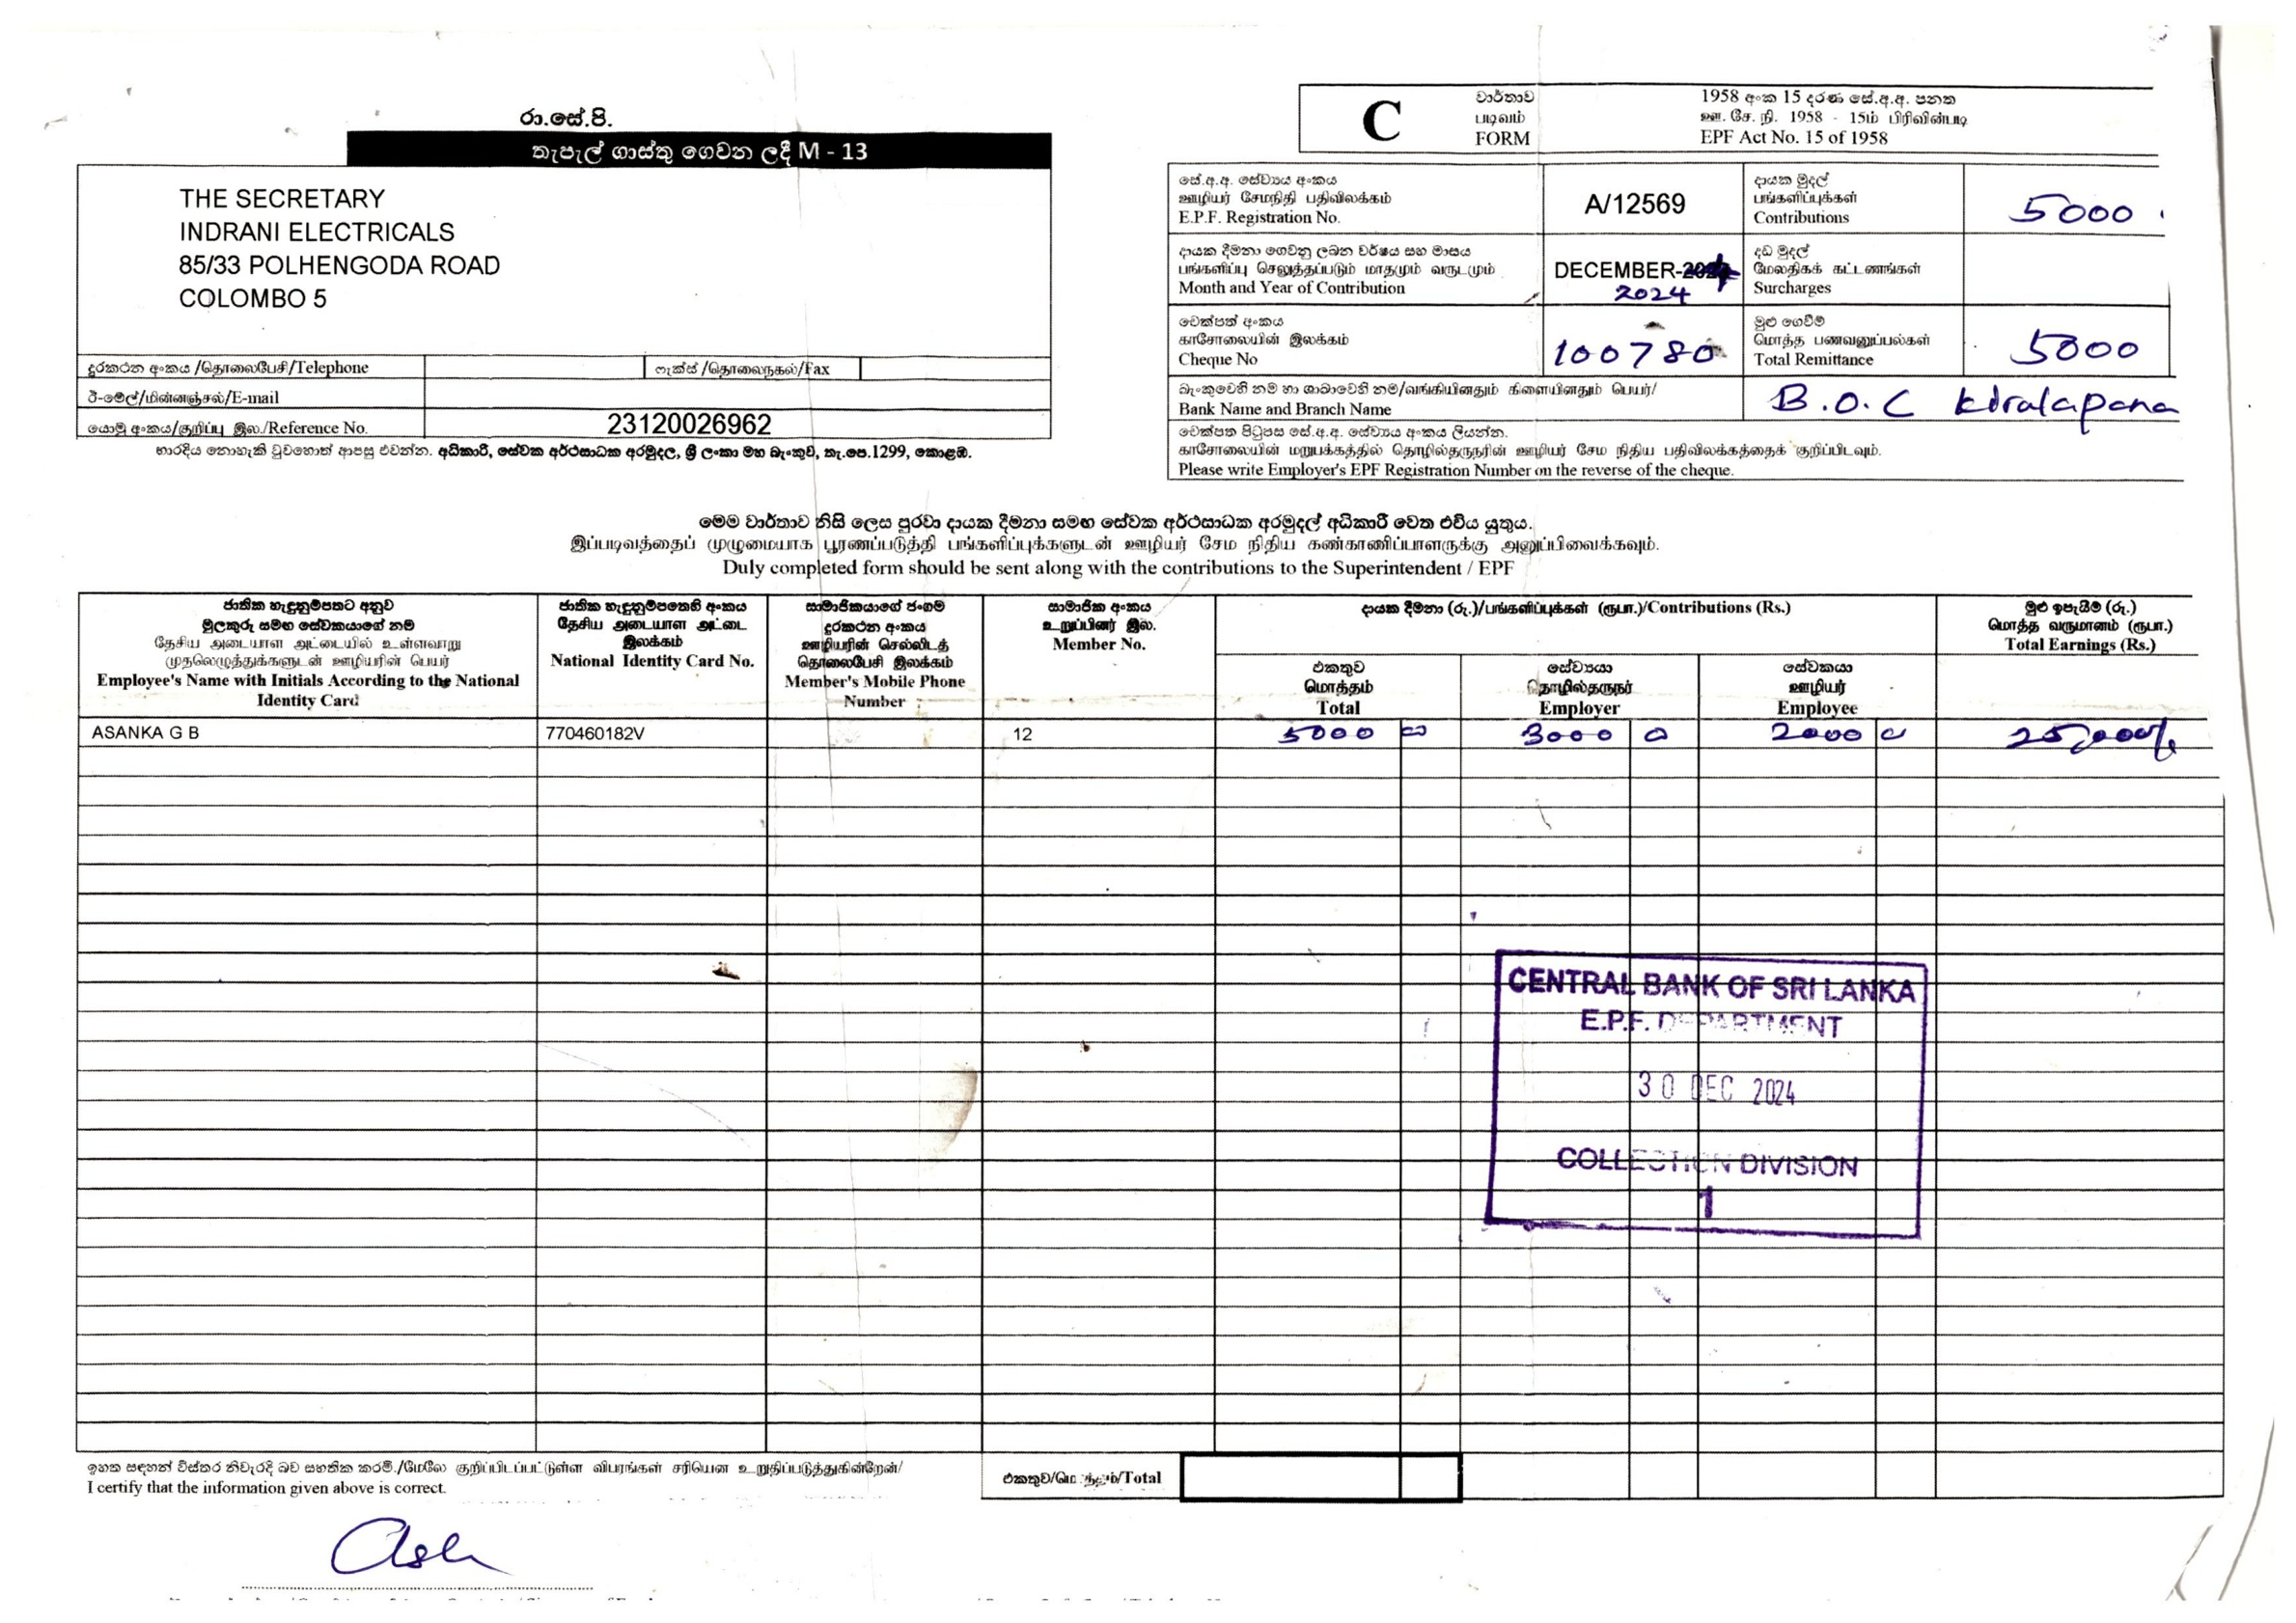 රා.සේ.පි.
තැපැල් ගාස්තු ගෙවන ලදී M - 13
THE SECRETARY
INDRANI ELECTRICALS
85/33 POLHENGODA ROAD
COLOMBO 5
දුරකථන අංකය /தொலைபேசி/Telephone
ෆැක්ස් /தொலைநகல்/Fax
ඊ-මේල්/மின்னஞ்சல்/E-mail
යොමු අංකය/குறிப்பு இல./Reference No. 23120026962
භාරදිය නොහැකි වුවහොත් ආපසු එවන්න. අධිකාරී, සේවක අර්ථසාධක අරමුදල, ශ්‍රී ලංකා මහ බැංකුව, තැ.පෙ.1299, කොළඹ.
C
වාර්තාව
படிவம்
FORM
1958 අංක 15 දරණ සේ.අ.අ. පනත
ஊ. சே. நி. 1958 - 15ம் பிரிவின்படி
EPF Act No. 15 of 1958
සේ.අ.අ. සේව්‍යය අංකය
ஊழியர் சேமநிதி பதிவிலக்கம்
E.P.F. Registration No.
A/12569
දායක මුදල්
பங்களிப்புக்கள்
Contributions
5000
දායක දීමනා ගෙවනු ලබන වර්ෂය සහ මාසය
பங்களிப்பு செலுத்தப்படும் மாதமும் வருடமும்
Month and Year of Contribution
DECEMBER-
2024
දඩ මුදල්
மேலதிகக் கட்டணங்கள்
Surcharges
චෙක්පත් අංකය
காசோலையின் இலக்கம்
Cheque No
100780
මුළු ගෙවීම්
மொத்த பணவனுப்பல்கள்
Total Remittance
5000
බැංකුවෙහි නම හා ශාඛාවෙහි නම/வங்கியினதும் கிளையினதும் பெயர்/
Bank Name and Branch Name
B.O.C Kiralapana
චෙක්පත පිටුපස සේ.අ.අ. සේව්‍යය අංකය ලියන්න.
காசோலையின் மறுபக்கத்தில் தொழில்தருநரின் ஊழியர் சேம நிதிய பதிவிலக்கத்தைக் குறிப்பிடவும்.
Please write Employer's EPF Registration Number on the reverse of the cheque.
මෙම වාර්තාව නිසි ලෙස පුරවා දායක දීමනා සමඟ සේවක අර්ථසාධක අරමුදල් අධිකාරී වෙත එවිය යුතුය.
இப்படிவத்தைப் முழுமையாக பூரணப்படுத்தி பங்களிப்புக்களுடன் ஊழியர் சேம நிதிய கண்காணிப்பாளருக்கு அனுப்பிவைக்கவும்.
Duly completed form should be sent along with the contributions to the Superintendent / EPF
ජාතික හැඳුනුම්පතට අනුව
මුලකුරු සමඟ සේවකයාගේ නම
தேசிய அடையாள அட்டையில் உள்ளவாறு
முதலெழுத்துக்களுடன் ஊழியரின் பெயர்
Employee's Name with Initials According to the National
Identity Card
ජාතික හැඳුනුම්පතෙහි අංකය
தேசிய அடையாள அட்டை
இலக்கம்
National Identity Card No.
සාමාජිකයාගේ ජංගම
දුරකථන අංකය
ஊழியரின் செல்லிடத்
தொலைபேசி இலக்கம்
Member's Mobile Phone
Number
සාමාජික අංකය
உறுப்பினர் இல.
Member No.
දායක දීමනා (රු.)/பங்களிப்புக்கள் (ரூபா.)/Contributions (Rs.)
එකතුව
மொத்தம்
Total
සේව්‍යයා
தொழில்தருநர்
Employer
සේවකයා
ஊழியர்
Employee
මුළු ඉපැයීම් (රු.)
மொத்த வருமானம் (ரூபா.)
Total Earnings (Rs.)
ASANKA G B 770460182V 12 5000 3000 2000 25,000/-
CENTRAL BANK OF SRI LANKA
E.P.F. DEPARTMENT
30 DEC 2024
COLLECTION DIVISION
1
ඉහත සඳහන් විස්තර නිවැරදි බව සහතික කරමි./மேலே குறிப்பிடப்பட்டுள்ள விபரங்கள் சரியென உறுதிப்படுத்துகின்றேன்/
I certify that the information given above is correct.
එකතුව/மொத்தம்/Total